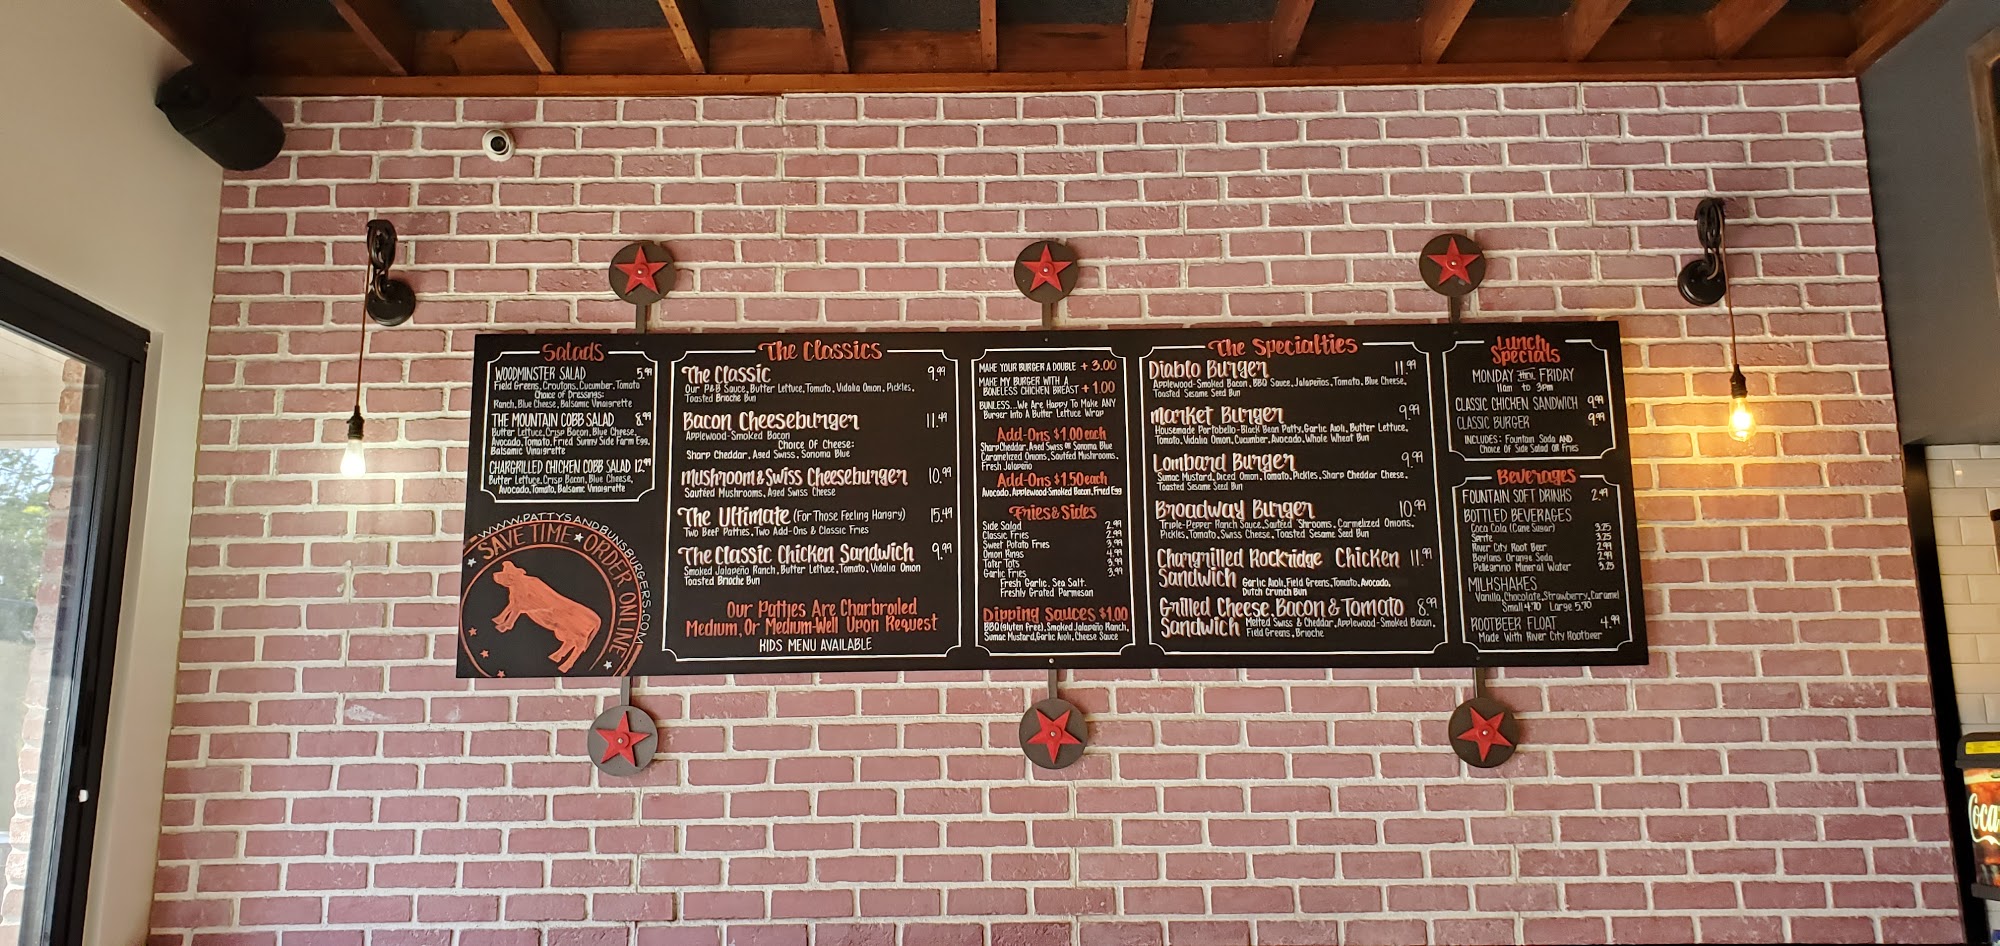 Salads
WOODMINSTER SALAD 5.99
Field Greens, Croutons, Cucumber, Tomato
Choice of Dressings:
Ranch, Blue Cheese, Balsamic Vinaigrette
THE MOUNTAIN COBB SALAD 8.99
Butter Lettuce, Crisp Bacon, Blue Cheese,
Avocado, Tomato, Fried Sunny Side Farm Egg,
Balsamic Vinaigrette
CHARGRILLED CHICKEN COBB SALAD 12.99
Butter Lettuce, Crisp Bacon, Blue Cheese,
Avocado, Tomato, Balsamic Vinaigrette
WWW.PATTYSANDBUNSBURGERS.COM
SAVE TIME ★ ORDER ONLINE
The Classics
The Classic 9.99
Our P&B Sauce, Butter Lettuce, Tomato, Vidalia Onion, Pickles,
Toasted Brioche Bun
Bacon Cheeseburger 11.49
Applewood-Smoked Bacon
Choice Of Cheese:
Sharp Cheddar, Aged Swiss, Sonoma Blue
Mushroom & Swiss Cheeseburger 10.99
Sautéed Mushrooms, Aged Swiss Cheese
The Ultimate (For Those Feeling Hangry) 15.49
Two Beef Patties, Two Add-Ons & Classic Fries
The Classic Chicken Sandwich 9.99
Smoked Jalapeño Ranch, Butter Lettuce, Tomato, Vidalia Onion
Toasted Brioche Bun
Our Patties Are Charbroiled
Medium, Or Medium-Well Upon Request
KIDS MENU AVAILABLE
MAKE YOUR BURGER A DOUBLE + 3.00
MAKE MY BURGER WITH A
BONELESS CHICKEN BREAST + 1.00
BUNLESS...We Are Happy To Make ANY
Burger Into A Butter Lettuce Wrap
Add-Ons $1.00 each
Sharp Cheddar, Aged Swiss OR Sonoma Blue
Caramelized Onions, Sautéed Mushrooms,
Fresh Jalapeño
Add-Ons $1.50 each
Avocado, Applewood-Smoked Bacon, Fried Egg
Fries & Sides
Side Salad 2.99
Classic Fries 2.99
Sweet Potato Fries 3.99
Onion Rings 4.99
Tater Tots 3.99
Garlic Fries 3.99
Fresh Garlic, Sea Salt,
Freshly Grated Parmesan
Dipping Sauces $1.00
BBQ (Gluten Free), Smoked Jalapeño Ranch,
Sumac Mustard, Garlic Aioli, Cheese Sauce
The Specialties
Diablo Burger 11.99
Applewood-Smoked Bacon, BBQ Sauce, Jalapeños, Tomato, Blue Cheese,
Toasted Sesame Seed Bun
Market Burger 9.99
Housemade Portobello-Black Bean Patty, Garlic Aioli, Butter Lettuce,
Tomato, Vidalia Onion, Cucumber, Avocado, Whole Wheat Bun
Lombard Burger 9.99
Sumac Mustard, Diced Onion, Tomato, Pickles, Sharp Cheddar Cheese,
Toasted Sesame Seed Bun
Broadway Burger 10.99
Triple-Pepper Ranch Sauce, Sautéed 'Shrooms, Carmelized Onions,
Pickles, Tomato, Swiss Cheese, Toasted Sesame Seed Bun
Chargrilled Rockridge Chicken 11.99
Sandwich Garlic Aioli, Field Greens, Tomato, Avocado,
Dutch Crunch Bun
Grilled Cheese, Bacon & Tomato 8.99
Sandwich Melted Swiss & Cheddar, Applewood-Smoked Bacon,
Field Greens, Brioche
Lunch
Specials
MONDAY thru FRIDAY
11am to 3pm
CLASSIC CHICKEN SANDWICH 9.99
CLASSIC BURGER 9.99
INCLUDES: Fountain Soda AND
Choice OF Side Salad OR Fries
Beverages
FOUNTAIN SOFT DRINKS 2.49
BOTTLED BEVERAGES
Coca Cola (Cane Sugar) 3.25
Sprite 3.25
River City Root Beer 2.99
Boylans Orange Soda 2.99
Pellegrino Mineral Water 3.25
MILKSHAKES
Vanilla, Chocolate, Strawberry, Caramel
Small 4.70 Large 5.70
ROOTBEER FLOAT 4.99
Made With River City Rootbeer
Coca